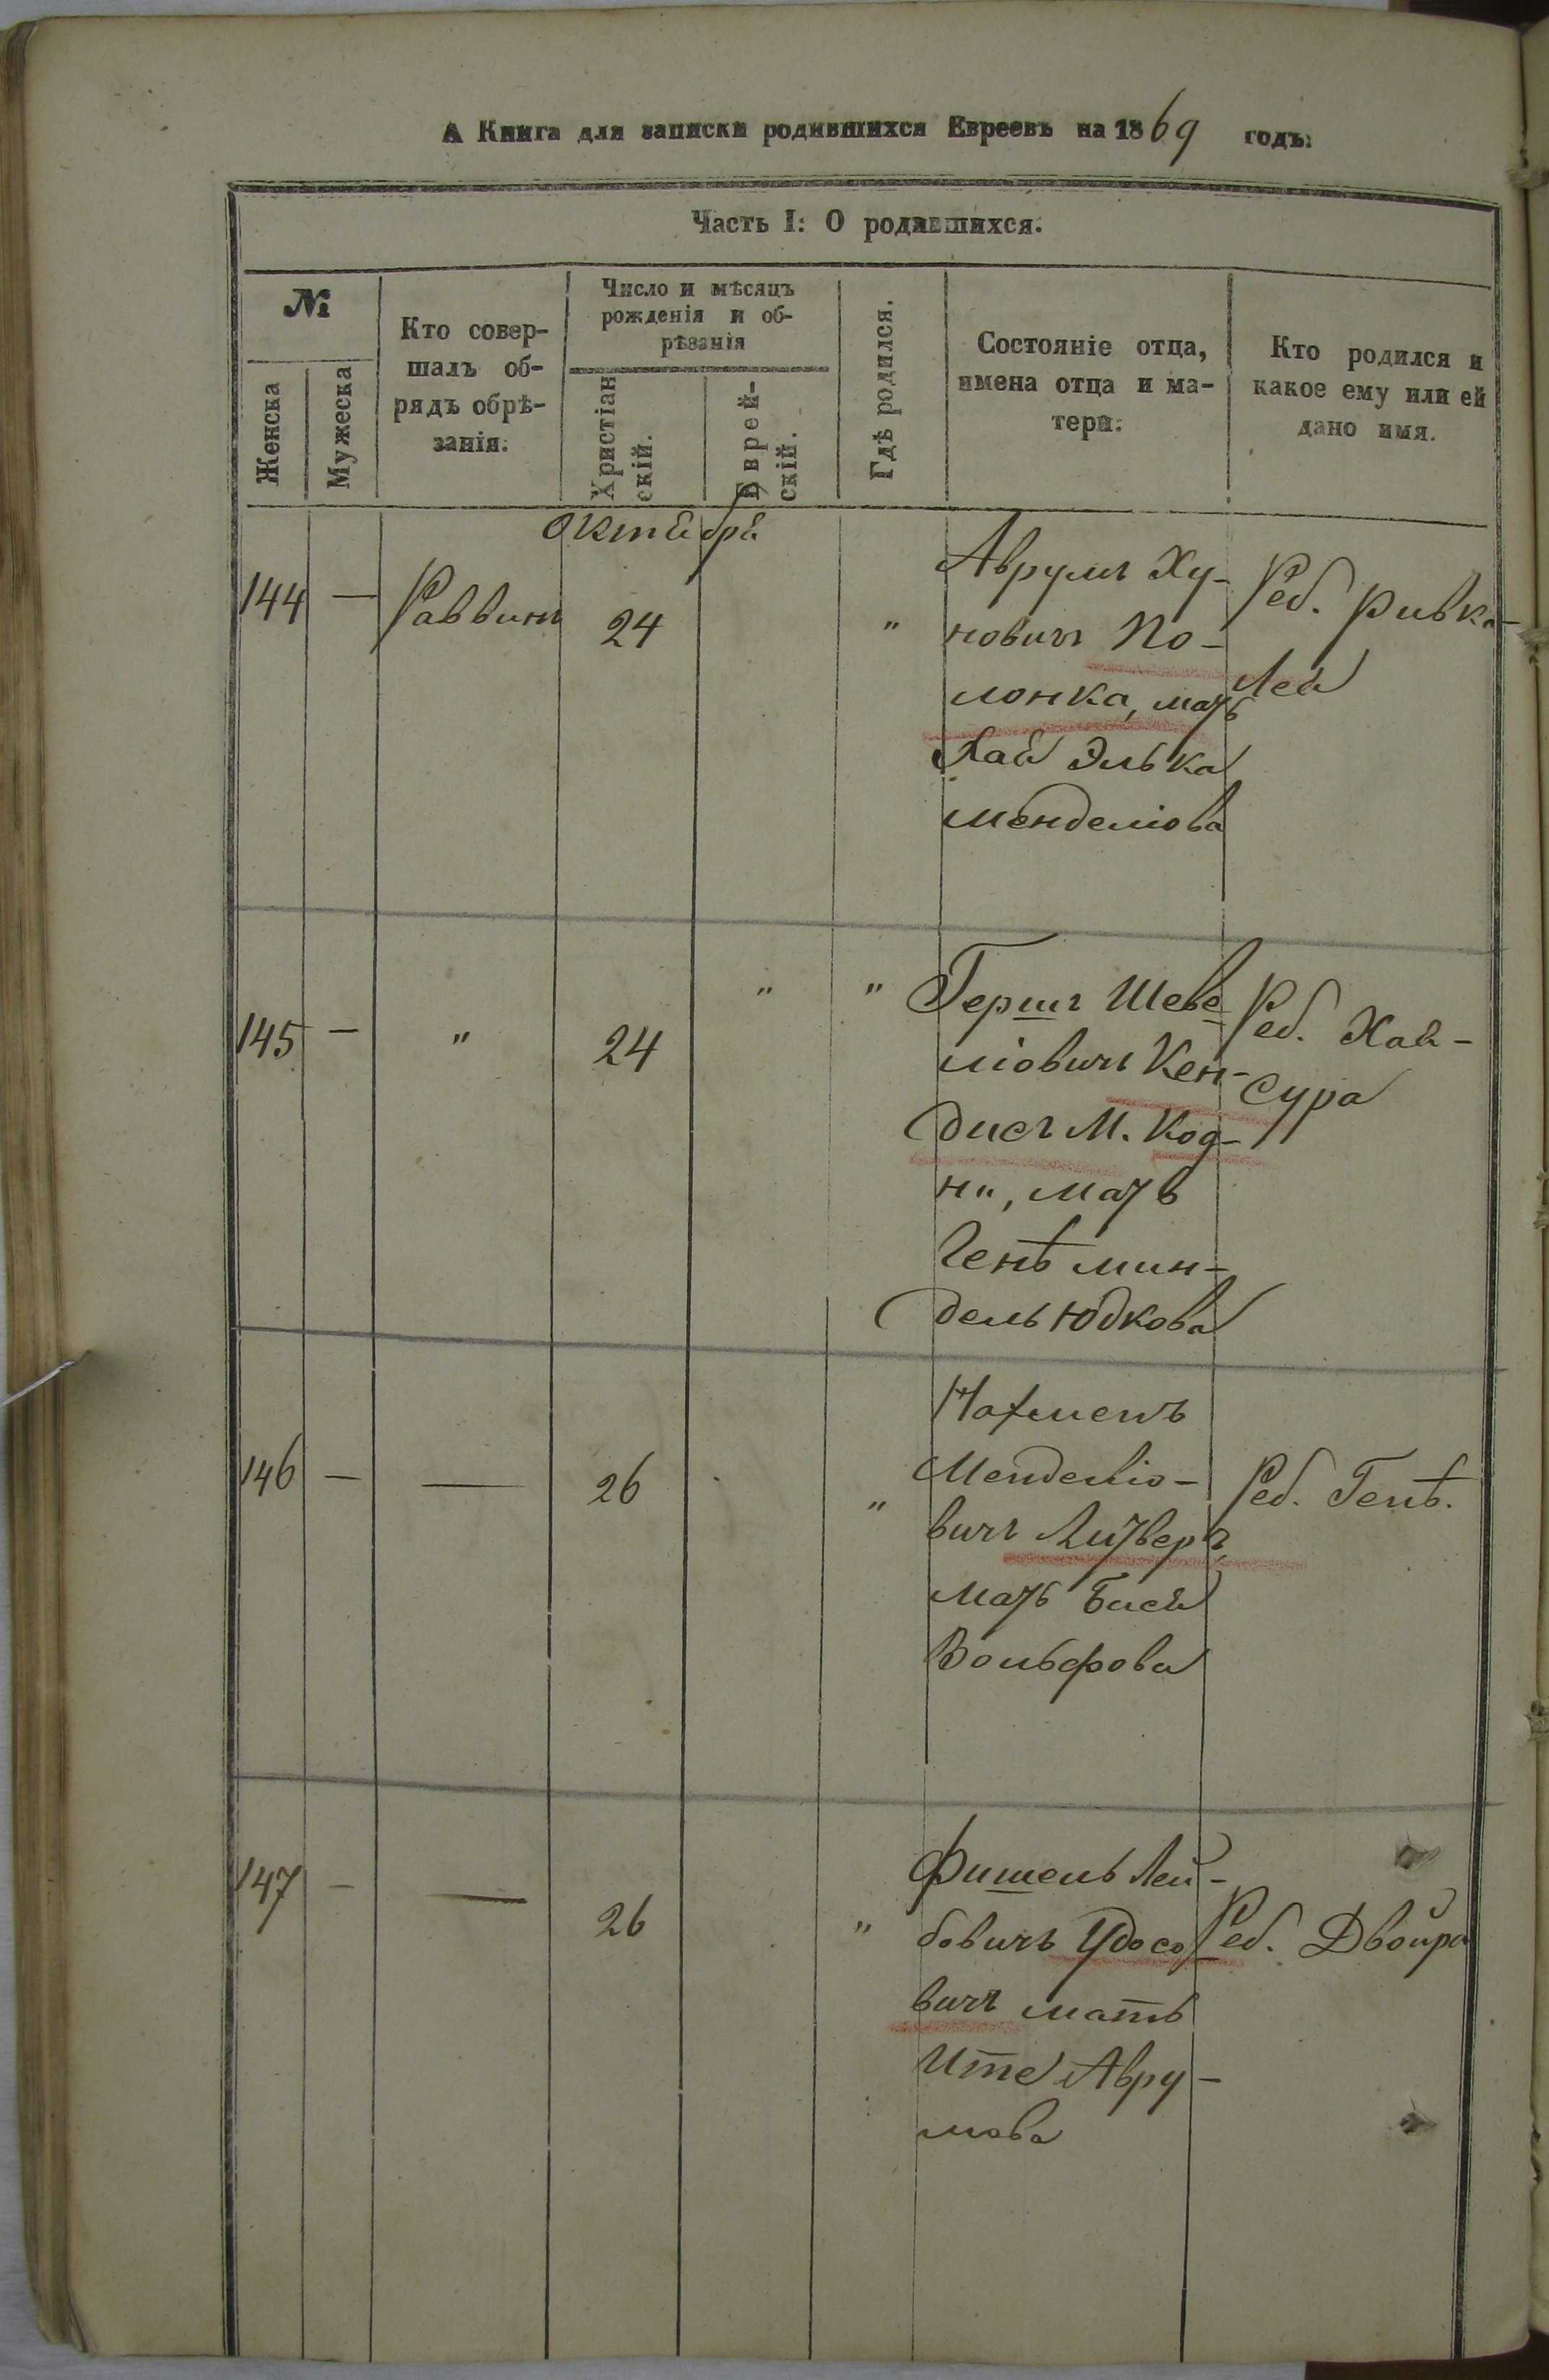 А Книга для записки родившихся Евреевъ на 1869 годъ.
Часть I: О родившихся.
№
Женска
Мужеска
Кто совер-
шалъ об-
рядъ обрѣ-
занія.
Число и мѣсяцъ
рожденія и об-
рѣзанія
Христіан
скій.
Еврей-
скій.
Гдѣ родился.
Состояніе отца,
имена отца и ма-
тери.
Кто родился и
какое ему или ей
дано имя.
Октября
144 — Раввинъ 24 "
Аврумъ Ху-
новичъ По-
лонка, мать
Хая Элька
Менделіова
Реб. Ривка-
Лея
145 — " 24 " "
Гершъ Шеве
ліовичъ Кен-
дисъ М. Код-
ни, мать
Генѣ Мин-
дель Юдкова
Реб. Хая-
Сура
146 — — 26 "
Нахменъ
Менделіо-
вичъ Литверъ,
мать Бася
Вольфова
Реб. Генѣ.
147 — — 26 "
Фишель Лей-
бовичъ Удосо
вичъ мать
Ите Авру-
мова
Реб. Двойра